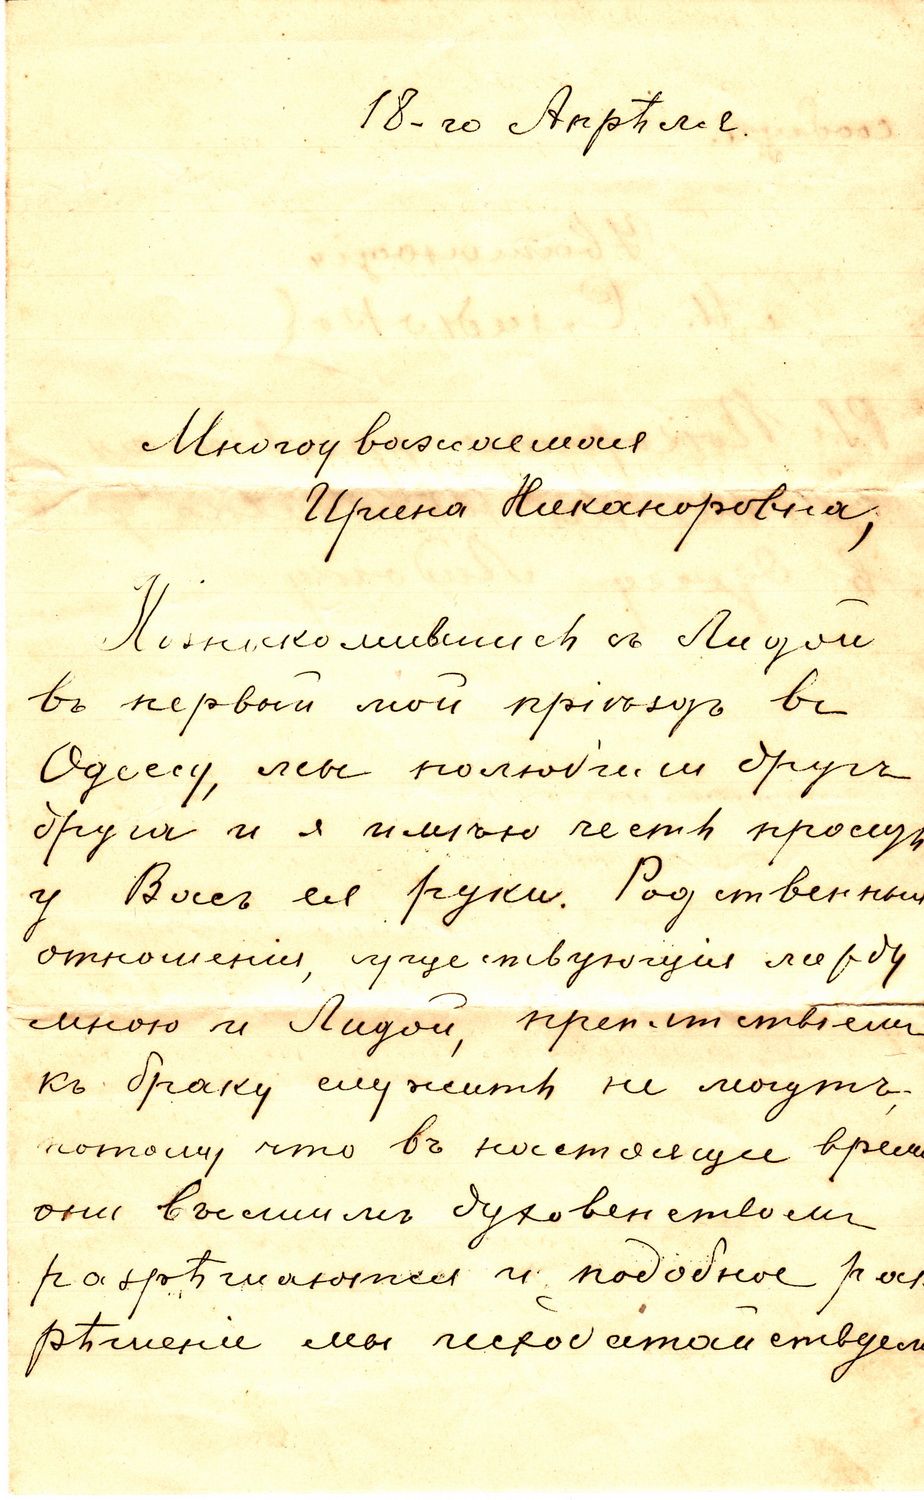 18-го Апрѣля.
Многоуважаемая
Ирина Никаноровна,
Познакомившись съ Лидой
въ первый мой пріѣздъ въ
Одессу, мы полюбили другъ
друга и я имѣю честь просить
у Васъ ея руки. Родственныя
отношенія, существующія между
мною и Лидой, препятствіемъ
къ браку служить не могутъ,
потому что въ настоящее время
они высшимъ духовенствомъ
разрѣшаются и подобное раз
рѣшеніе мы исходатайствуемъ